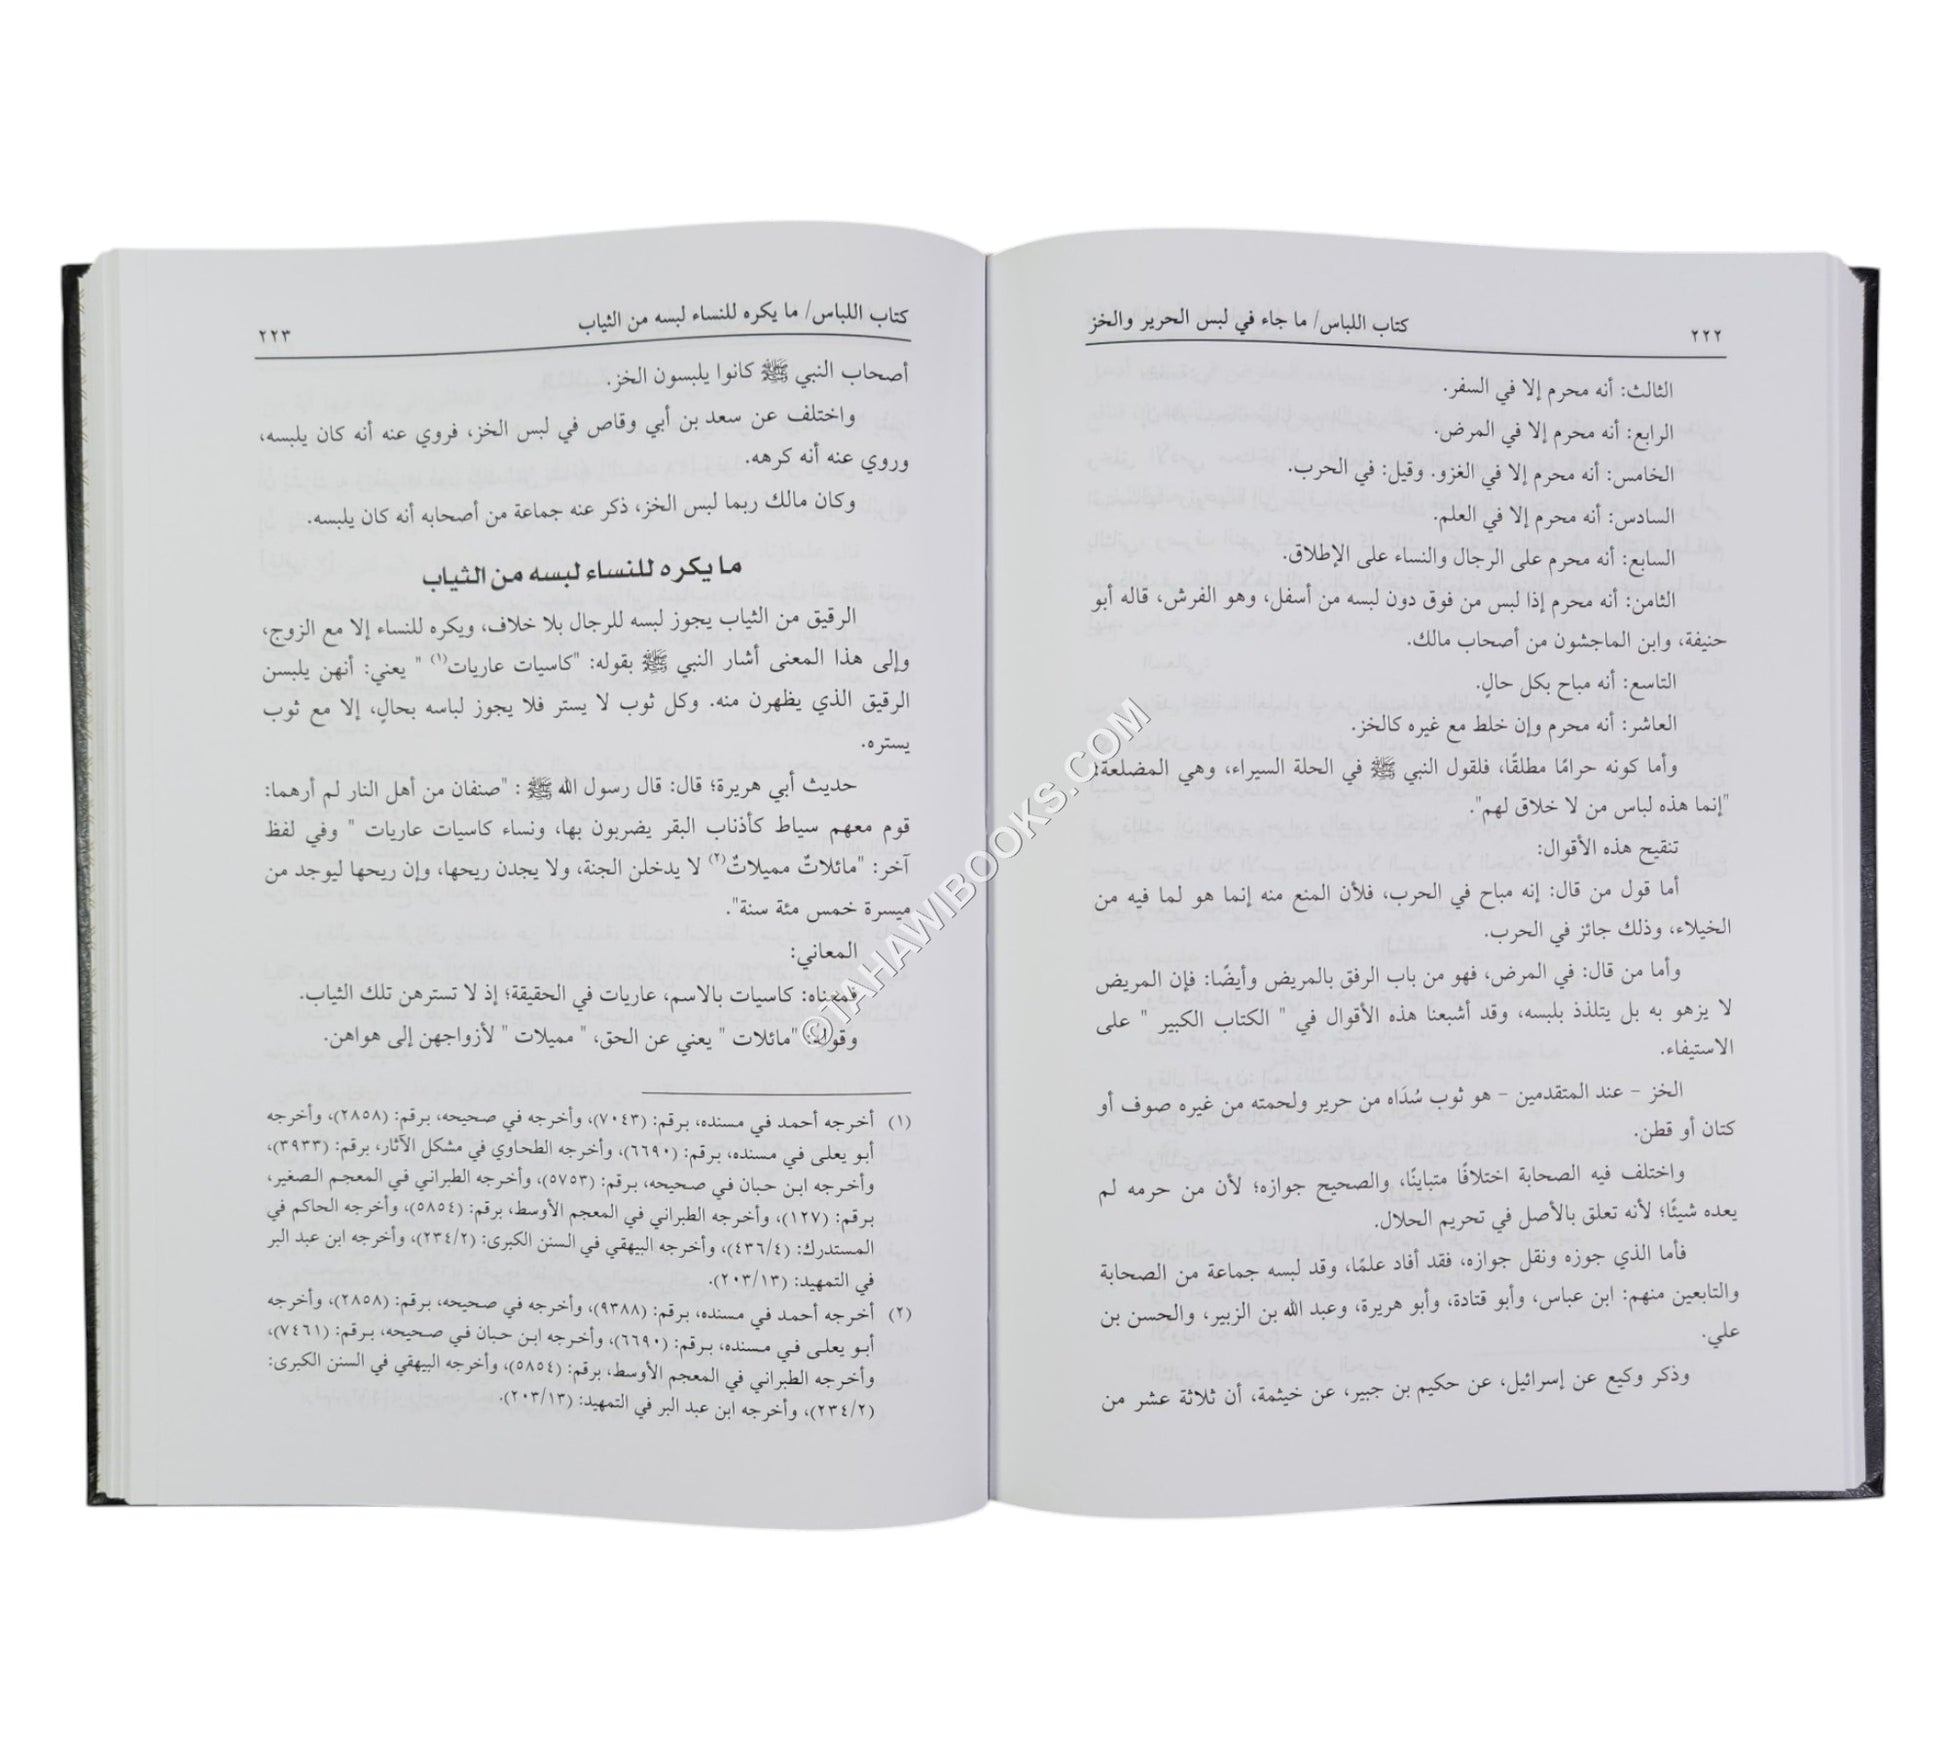 ٢٢٢ كتاب اللباس/ ما جاء في لبس الحرير والخز
الثالث: أنه محرم إلا في السفر.
الرابع: أنه محرم إلا في المرض.
الخامس: أنه محرم إلا في الغزو. وقيل: في الحرب.
السادس: أنه محرم إلا في العلم.
السابع: أنه محرم على الرجال والنساء على الإطلاق.
الثامن: أنه محرم إذا لبس من فوق دون لبسه من أسفل، وهو الفرش، قاله أبو
حنيفة، وابن الماجشون من أصحاب مالك.
التاسع: أنه مباح بكل حالٍ.
العاشر: أنه محرم وإن خلط مع غيره كالخز.
وأما كونه حرامًا مطلقًا، فلقول النبي ﷺ في الحلة السيراء، وهي المضلعة:
"إنما هذه لباس من لا خلاق لهم".
تنقيح هذه الأقوال:
أما قول من قال: إنه مباح في الحرب، فلأن المنع منه إنما هو لما فيه من
الخيلاء، وذلك جائز في الحرب.
وأما من قال: في المرض، فهو من باب الرفق بالمريض وأيضًا: فإن المريض
لا يزهو به بل يتلذذ بلبسه، وقد أشبعنا هذه الأقوال في " الكتاب الكبير " على
الاستيفاء.
الخز - عند المتقدمين - هو ثوب سُدَاه من حرير ولحمته من غيره صوف أو
كتان أو قطن.
واختلف فيه الصحابة اختلافًا متباينًا، والصحيح جوازه؛ لأن من حرمه لم
يعده شيئًا؛ لأنه تعلق بالأصل في تحريم الحلال.
فأما الذي جوزه ونقل جوازه، فقد أفاد علمًا، وقد لبسه جماعة من الصحابة
والتابعين منهم: ابن عباس، وأبو قتادة، وأبو هريرة، وعبد الله بن الزبير، والحسن بن
علي.
وذكر وكيع عن إسرائيل، عن حكيم بن جبير، عن خيثمة، أن ثلاثة عشر من
كتاب اللباس/ ما يكره للنساء لبسه من الثياب ٢٢٣
أصحاب النبي ﷺ كانوا يلبسون الخز.
واختلف عن سعد بن أبي وقاص في لبس الخز، فروي عنه أنه كان يلبسه،
وروي عنه أنه كرهه.
وكان مالك ربما لبس الخز، ذكر عنه جماعة من أصحابه أنه كان يلبسه.
ما يكره للنساء لبسه من الثياب
الرقيق من الثياب يجوز لبسه للرجال بلا خلاف، ويكره للنساء إلا مع الزوج،
وإلى هذا المعنى أشار النبي ﷺ بقوله: "كاسيات عاريات(١) " يعني: أنهن يلبسن
الرقيق الذي يظهرن منه. وكل ثوب لا يستر فلا يجوز لباسه بحالٍ، إلا مع ثوب
يستره.
حديث أبي هريرة؛ قال: قال رسول الله ﷺ : "صنفان من أهل النار لم أرهما:
قوم معهم سياط كأذناب البقر يضربون بها، ونساء كاسيات عاريات " وفي لفظ
آخر: "مائلاتٌ مميلاتٌ(٢) لا يدخلن الجنة، ولا يجدن ريحها، وإن ريحها ليوجد من
ميسرة خمس مئة سنة".
المعاني:
فمعناه: كاسيات بالاسم، عاريات في الحقيقة؛ إذ لا تسترهن تلك الثياب.
وقوله: "مائلات " يعني عن الحق، " مميلات " لأزواجهن إلى هواهن.
(١) أخرجه أحمد في مسنده، برقم: (٧٠٤٣)، وأخرجه في صحيحه، برقم: (٢٨٥٨)، وأخرجه
أبو يعلى في مسنده، برقم: (٦٦٩٠)، وأخرجه الطحاوي في مشكل الآثار، برقم: (٣٩٣٣)
وأخرجه ابن حبان في صحيحه، برقم: (٥٧٥٣)، وأخرجه الطبراني في المعجم الصغير،
برقم: (١٢٧)، وأخرجه الطبراني في المعجم الأوسط، برقم: (٥٨٥٤)، وأخرجه الحاكم في
المستدرك: (٤٣٦/٤)، وأخرجه البيهقي في السنن الكبرى: (٢٣٤/٢)، وأخرجه ابن عبد البر
في التمهيد: (٢٠٣/١٣).
(٢) أخرجه أحمد في مسنده، برقم: (٩٣٨٨)، وأخرجه في صحيحه، برقم: (٢٨٥٨)، وأخرجه
أبو يعلى في مسنده، برقم: (٦٦٩٠)، وأخرجه ابن حبان في صحيحه، برقم: (٧٤٦١)،
وأخرجه الطبراني في المعجم الأوسط، برقم: (٥٨٥٤)، وأخرجه البيهقي في السنن الكبرى:
(٢٣٤/٢)، وأخرجه ابن عبد البر في التمهيد: (٢٠٣/١٣).
©TAHAWIBOOKS.COM